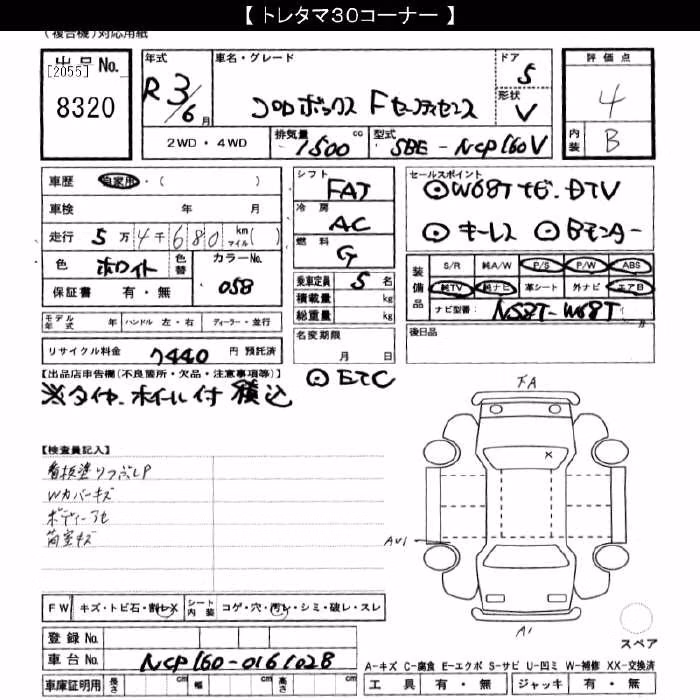 【 トレタマ３０コーナー 】
(複合機)対応用紙
出品No.
[2055]
8320
年式
R 3/6 月
車名・グレード
プロボックス F セーフティセンス
ドア
5
形状
V
評価点
4
内装
B
2WD・4WD
排気量
1500 cc
型式
5BE-NCP160V
車歴 自家用・( )
車検 年 月
走行 5万4千680 km マイル( )
色 ホワイト 色替 カラーNo. 058
保証書 有・無
シフト
FAT
冷房
AC
燃料
G
乗車定員 5 名
積載量 kg
総重量 kg
セールスポイント
⊙W68Tナビ.DTV
⊙キーレス ⊙Bモニター
装備品
S/R 純A/W P/S P/W ABS
純TV 純ナビ 革シート 外ナビ エアB
ナビ型番: NS8T-W68T
モデル年式 年 ハンドル 左・右 ディーラー・並行
名変期限
月 日
後日品
リサイクル料金 7440 円 預託済
【出品店申告欄(不良箇所・欠品・注意事項等)】
⊙ETC
※タイヤ.ホイール付 積込
【検査員記入】
看板塗りつぶしP
Wカバーキズ
ボディーアセ
荷室キズ
FW キズ・トビ石・割レX
シート内装 コゲ・穴・汚レ・シミ・破レ・スレ
登録No.
車台No. NCP160-0161028
車庫証明用 長さ cm 幅 cm 高さ cm
下A
X
AU1
A1
スペア
A-キズ C-腐食 E-エクボ S-サビ U-凹ミ W-補修 XX-交換済
工具 有・無 ジャッキ 有・無